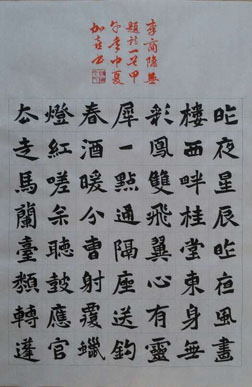 李商隱無
題詩一首甲
午年中夏
昨夜星辰昨夜風畫
樓西畔桂堂東身無
彩鳳雙飛翼心有靈
犀一點通隔座送鈎
春酒暖分曹射覆蠟
燈紅嗟余聽鼓應官
去走馬蘭臺類轉蓬